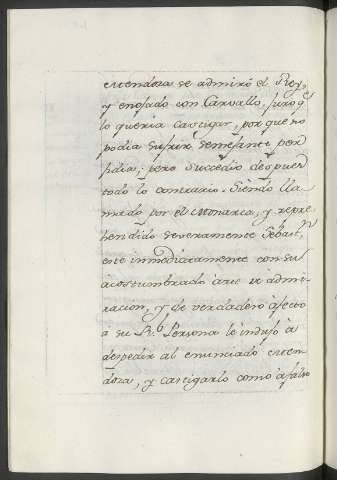 Mendoza se admiró el Rey,
y enojado con Carvallo, juro q.e
lo queria castigar, por que no
podia sufrir semejante per
fidia; pero succedio despues
todo lo contrario. Siendo lla
mado por el Monarca, y repre
hendido severamente Sebast.n
este inmediatamente con su
acostumbrado arte de admi
racion, y de verdadero afecto
á su R.l Persona le indujo á
despedir al enunciado Men
doza, y castigarlo como á falso